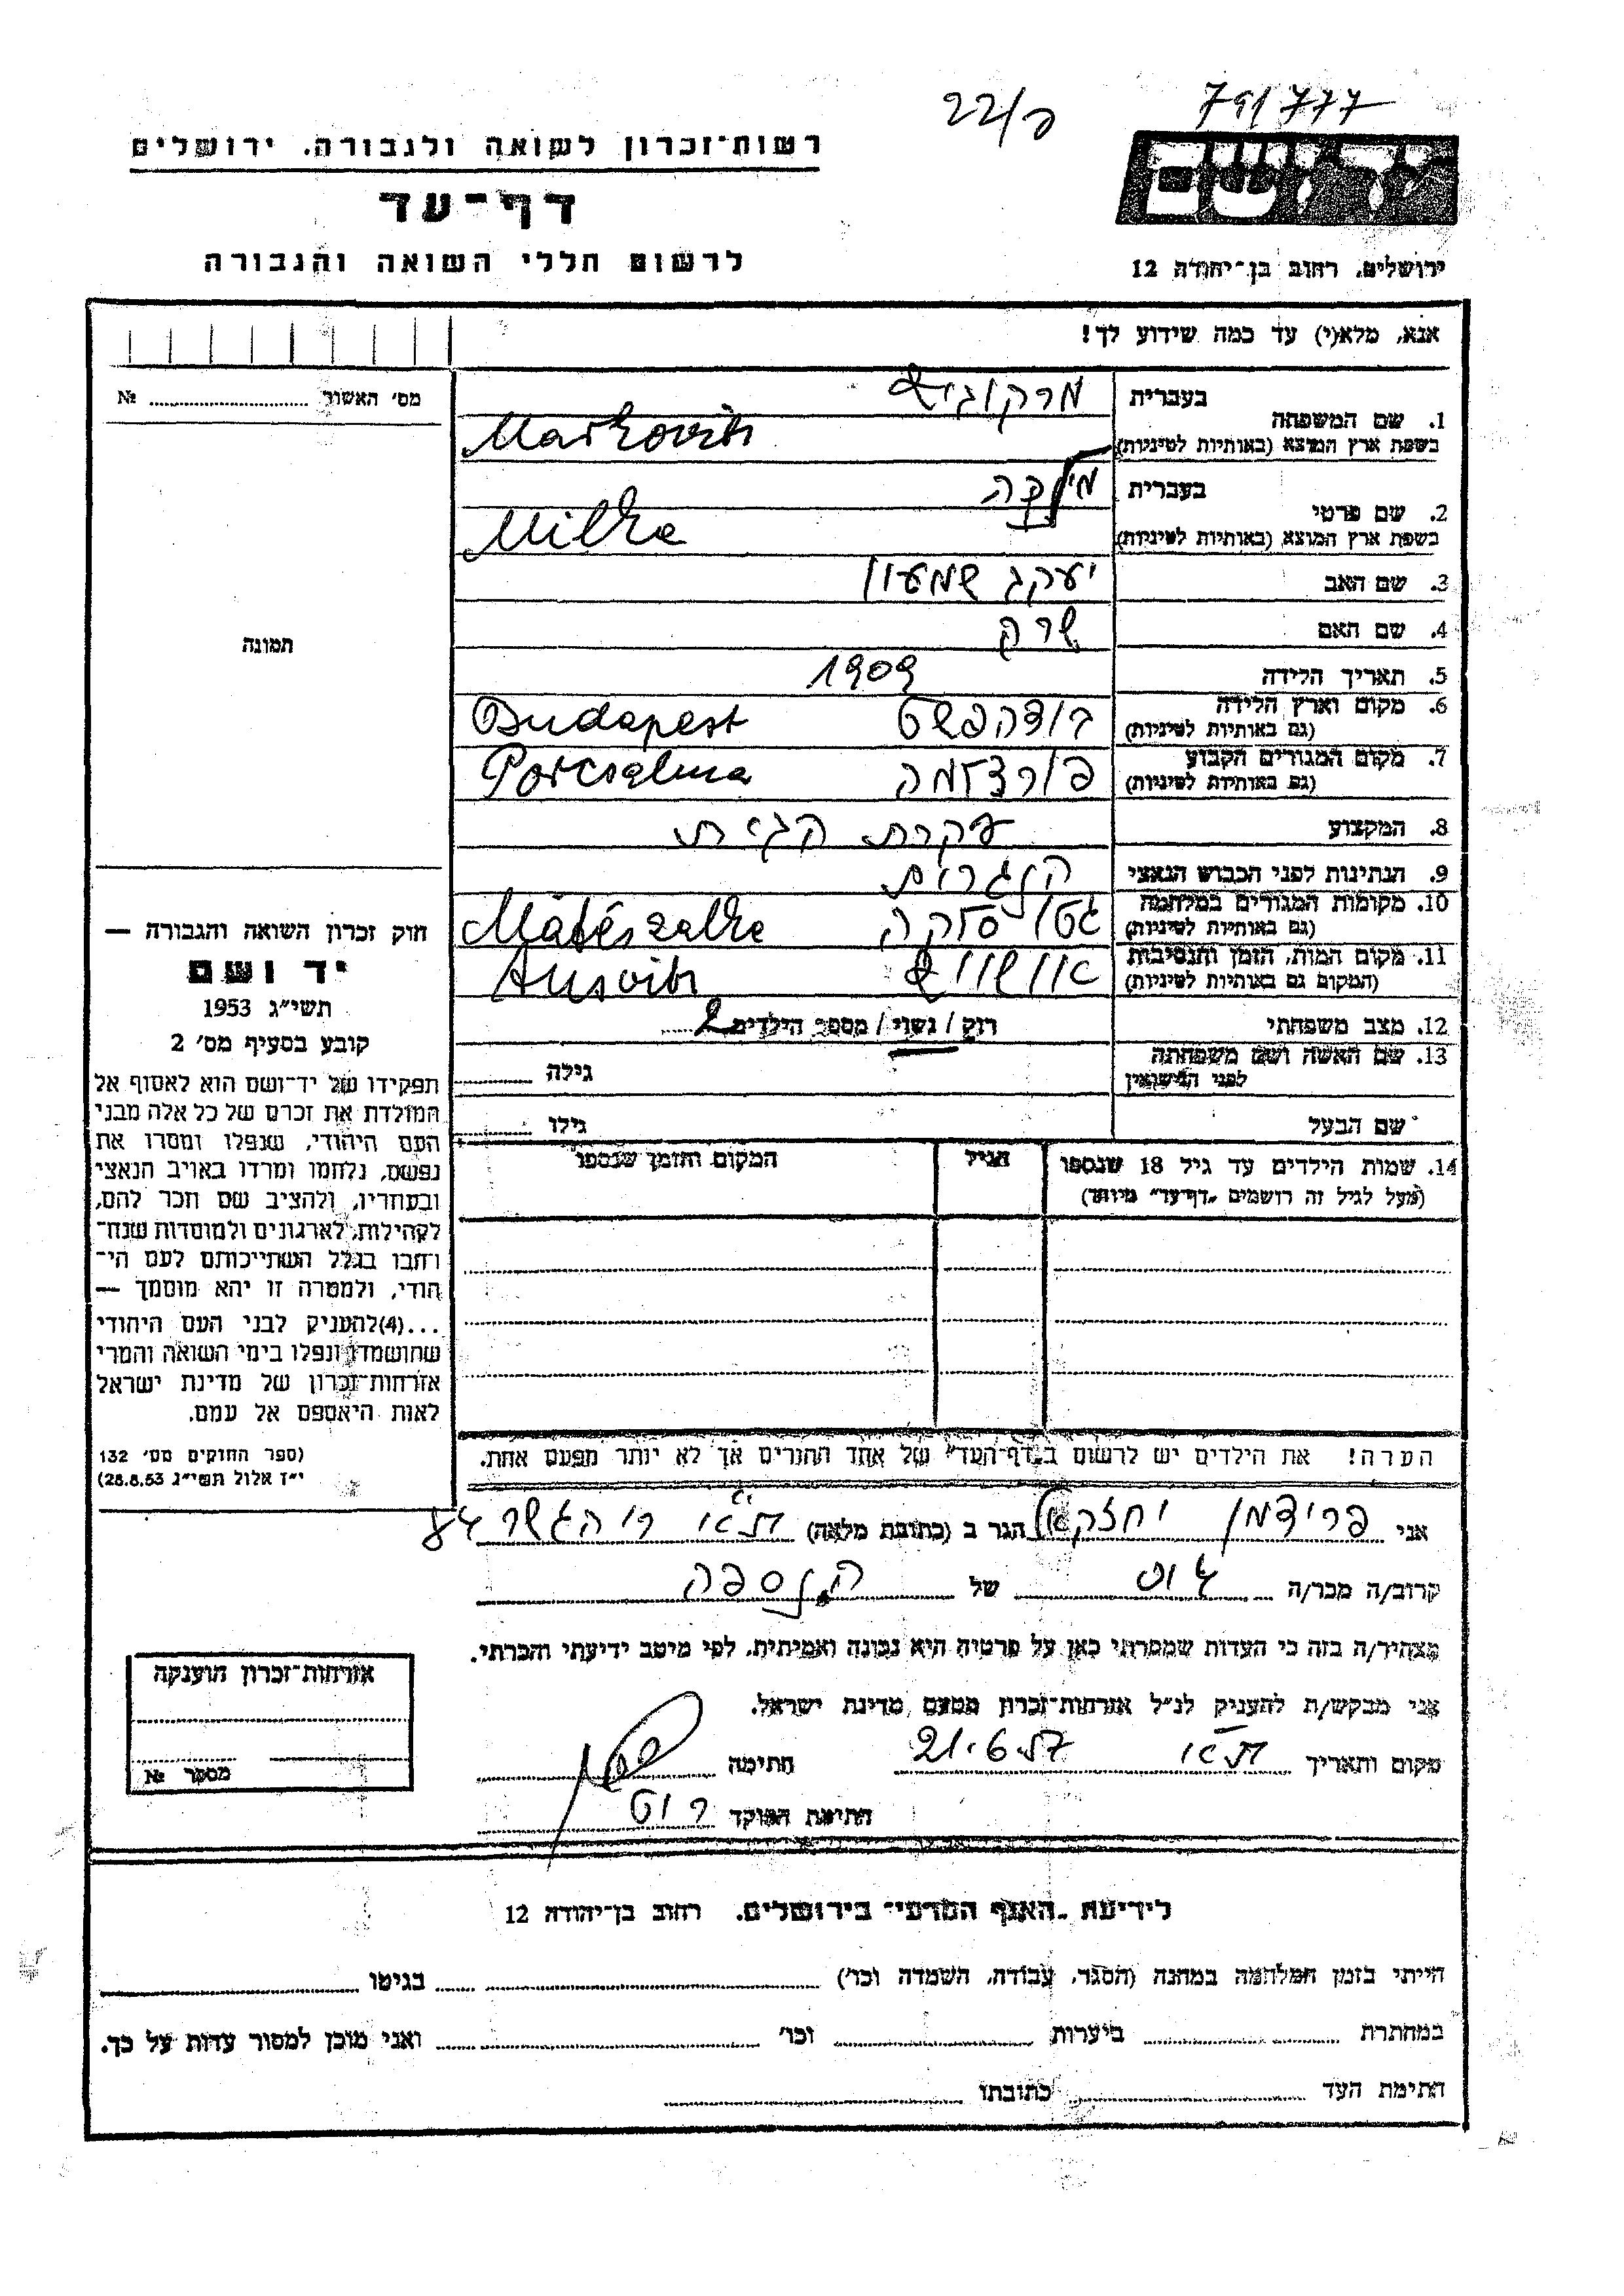 22/פ
79/777
רשות־זכרון לשואה ולגבורה. ירושלים
יד ושם
דף־עד
לרשום חללי השואה והגבורה
ירושלים, רחוב בן־יהודה 12
אנא, מלא(י) עד כמה שידוע לך!
מס׳ האשור № ........
תמונה
1. שם המשפחה
בעברית מרקוביץ
בשפת ארץ המוצא (באותיות לטיניות) Markovits
2. שם פרטי
בעברית מילקה
בשפת ארץ המוצא (באותיות לטיניות) Milka
3. שם האב יעקב שמעון
4. שם האם שרה
5. תאריך הלידה 1909
6. מקום וארץ הלידה בודהפשט Budapest
(גם באותיות לטיניות)
7. מקום המגורים הקבוע פורצלמה Porcsalma
(גם באותיות לטיניות)
8. המקצוע עקרת הבית
9. הנתינות לפני הכבוש הנאצי הונגרית
10. מקומות המגורים במלחמה גטו סלקה Mátészalka
(גם באותיות לטיניות)
11. מקום המות, הזמן והנסיבות אושוויץ Ausvits
(המקום גם באותיות לטיניות)
12. מצב משפחתי רוק / נשוי / מספר הילדים 2
13. שם האשה ושם משפחתה גילה
לפני הנישואין
שם הבעל גילו
14. שמות הילדים עד גיל 18 שנספו הגיל המקום והזמן שנספו
(מעל לגיל זה רושמים „דף־עד״ מיוחד)
הערה! את הילדים יש לרשום ב„דף־העד״ של אחד ההורים אך לא יותר מפעם אחת.
חוק זכרון השואה והגבורה —
יד ושם
תשי״ג 1953
קובע בסעיף מס׳ 2
תפקידו של יד־ושם הוא לאסוף אל
המולדת את זכרם של כל אלה מבני
העם היהודי, שנפלו ומסרו את
נפשם, נלחמו ומרדו באויב הנאצי
ובעוזריו, ולהציב שם וזכר להם,
לקהילות, לארגונים ולמוסדות שנח־
רחבו בגלל השתייכותם לעם הי־
הודי, ולמטרה זו יהא מוסמך —
...(4) להעניק לבני העם היהודי
שהושמדו ונפלו בימי השואה והמרי
אזרחות־זכרון של מדינת ישראל
לאות היאספם אל עמם.
(ספר החוקים מס׳ 132
י״ז אלול תשי״ג 28.8.53)
אני פרידמן יחזקאל הגר ב (כתובת מלאה) ת״א רח׳ הגשר 48
קרוב/ה מכר/ה גיס של הנספה
מצהיר/ה בזה כי העדות שמסרתי כאן על פרטיה היא נכונה ואמיתית, לפי מיטב ידיעתי והכרתי.
אני מבקש/ת להעניק לנ״ל אזרחות־זכרון מטעם מדינת ישראל.
מקום ותאריך ת״א 21.6.57 חתימה
חתימת הפוקד רוט
אזרחות־זכרון הוענקה
מספר №
לידיעת „האגף המדעי״ בירושלים. רחוב בן־יהודה 12
הייתי בזמן המלחמה במחנה (הסגר, עבודה, השמדה וכו׳) ........ בגיטו ........
במחתרת ........ ביערות ........ וכו׳ ........ ואני מוכן למסור עדות על כך.
חתימת העד ........ כתובתו ........